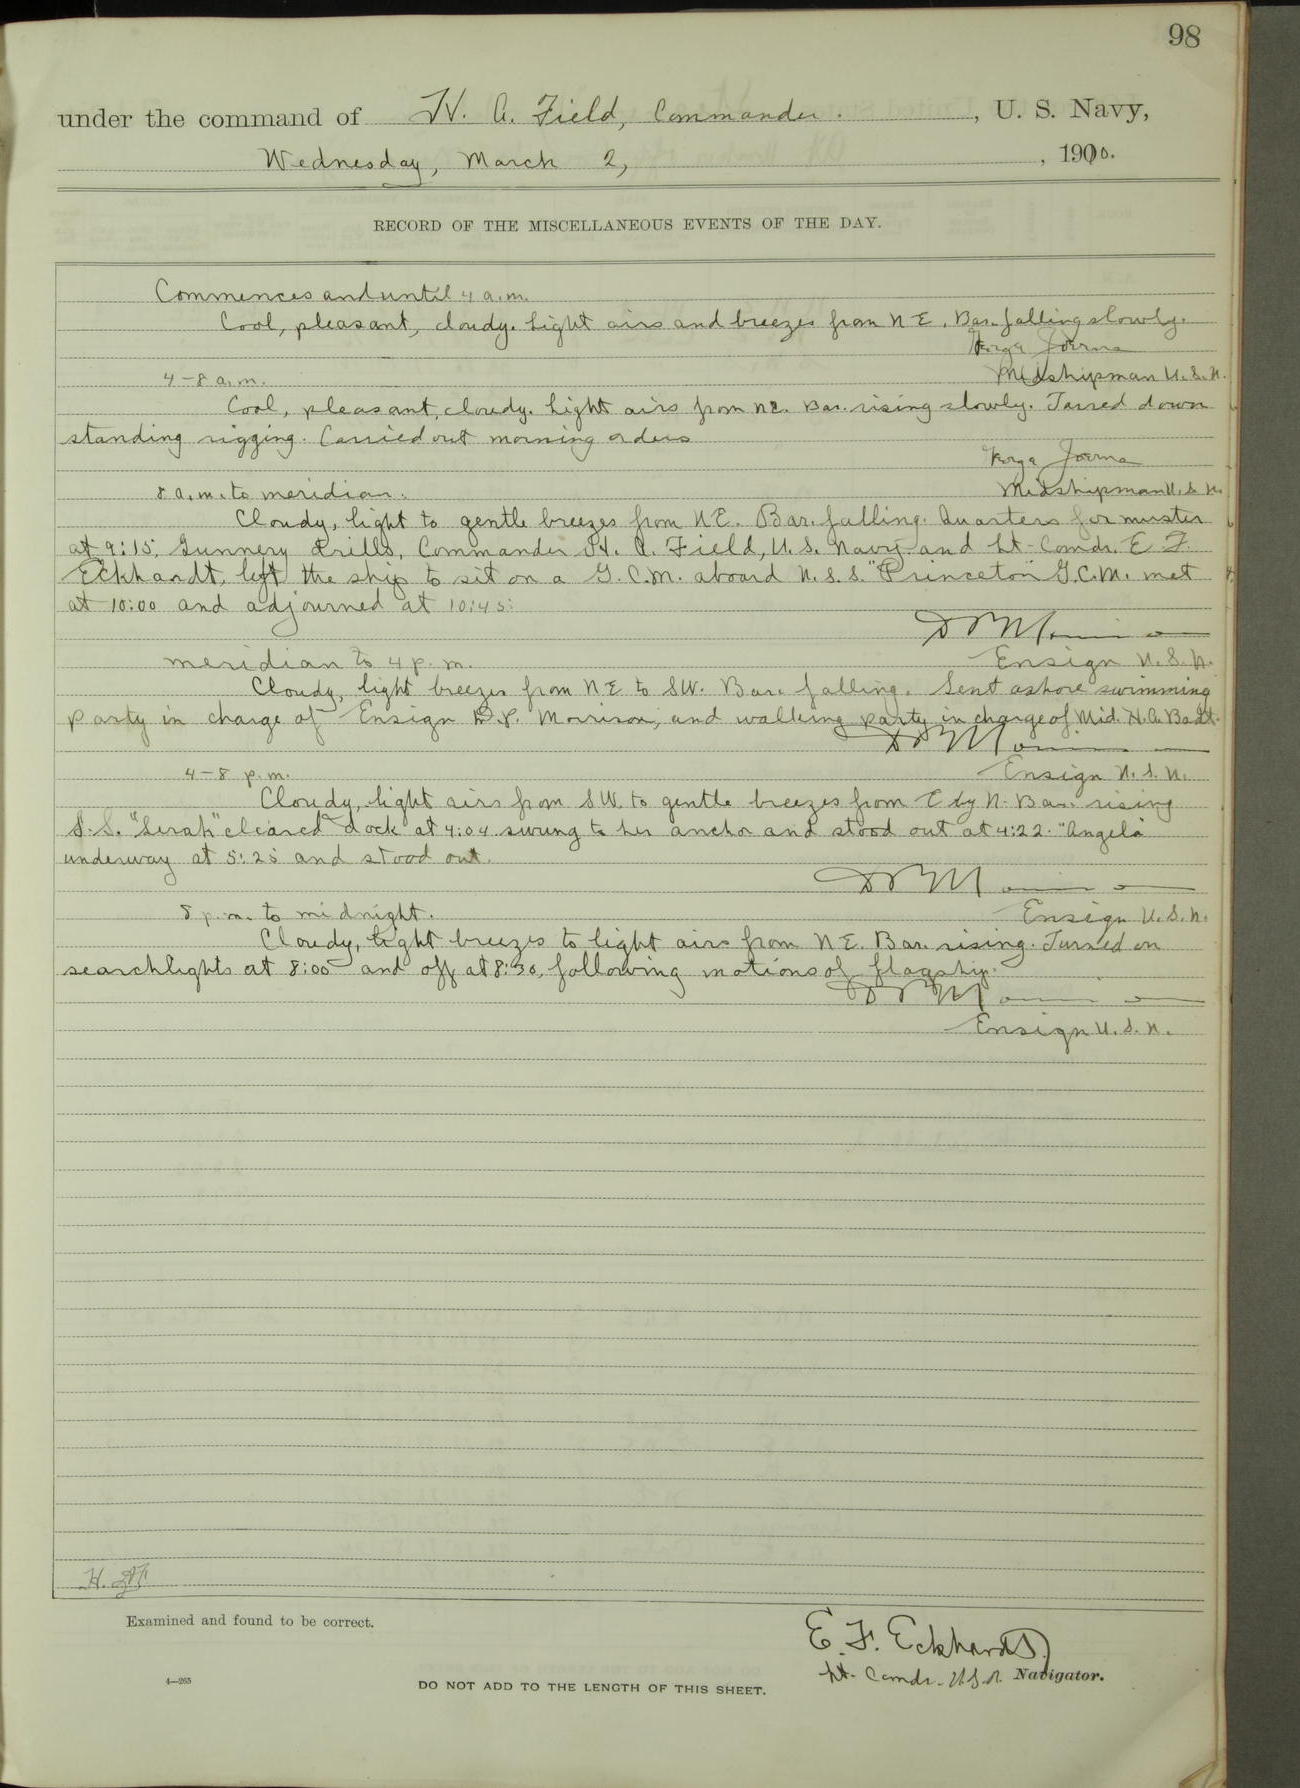 98
under the command of H. A. Field, Commander. , U. S. Navy,
Wednesday, March 2, , 1910.
RECORD OF THE MISCELLANEOUS EVENTS OF THE DAY.
Commences and until 4 a.m.
Cool, pleasant, cloudy. Light airs and breezes from N E. Bar. falling slowly.
Joerns
Midshipman U.S.N.
4-8 a.m.
Cool, pleasant, cloudy. Light airs from NE. Bar. rising slowly. Tarred down
standing rigging. Carried out morning orders
Joerns
Midshipman U.S.N.
8 a.m. to meridian.
Cloudy, light to gentle breezes from N.E. Bar. falling. Quarters for muster
at 9:15, Gunnery drills, Commander H. A. Field, U.S. Navy and Lt-Comdr. E F
Eckhardt, left the ship to sit on a G.C.M. aboard U.S.S. "Princeton" G.C.M. met
at 10:00 and adjourned at 10:45:
D P Morrison
Ensign U.S.N.
meridian to 4 p.m.
Cloudy, light breezes from N E to SW. Bar. falling. Sent ashore swimming
party in charge of Ensign D.P. Morrison, and walking party in charge of Mid. H.A. Badt.
D P Morrison
Ensign U.S.N.
4-8 p.m.
Cloudy, light airs from SW. to gentle breezes from E by N. Bar. rising
S.S. cleared dock at 4:04 swung to her anchor and stood out at 4:22. "Angelo"
underway at 5:25 and stood out.
D P Morrison
Ensign U.S.N.
8 p.m. to midnight.
Cloudy, light breezes to light airs from N E. Bar. rising. Turned on
searchlights at 8:00 and off at 8:30, following motions of flagship.
D P Morrison
Ensign U.S.N.
Examined and found to be correct.
E. F. Eckhardt
Lt. Comdr. U.S.N. Navigator.
4—265
DO NOT ADD TO THE LENGTH OF THIS SHEET.